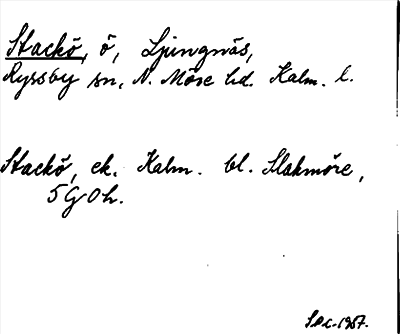 Stackö, ö, Ljungnäs,
Ryssby sn, N. Möre hd. Kalm. l.
Stackö, ek. Kalm. bl. Slakmöre,
5 G 0 h.
1957.